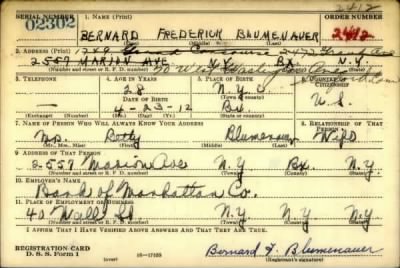 2412
SERIAL NUMBER 1. NAME (Print) ORDER NUMBER
02302 BERNARD FREDERICK BLUMENAUER 2412
(First) (Middle) (Last)
2. ADDRESS (Print) 1749 Grand Concourse
2557 MARION AVE N.Y.
(Number and street or R. F. D. number) (Town) (County) (State)
3. TELEPHONE 4. AGE IN YEARS 5. PLACE OF BIRTH 6. COUNTRY OF CITIZENSHIP
— 28 N.Y.C.
DATE OF BIRTH
4-23-12 Bx. U.S.
(Exchange) (Number) (Mo.) (Day) (Yr.) (State or country)
7. NAME OF PERSON WHO WILL ALWAYS KNOW YOUR ADDRESS 8. RELATIONSHIP OF THAT PERSON
Mrs. Betty Blumenauer Wife
(Mr., Mrs., Miss) (First) (Middle) (Last)
9. ADDRESS OF THAT PERSON
2557 Marion Ave N.Y. Bx. N.Y.
(Number and street or R. F. D. number) (Town) (County) (State)
10. EMPLOYER'S NAME
Bank of Manhattan Co.
11. PLACE OF EMPLOYMENT OR BUSINESS
40 Wall St N.Y. N.Y. N.Y.
(Number and street or R. F. D. number) (Town) (County) (State)
I AFFIRM THAT I HAVE VERIFIED ABOVE ANSWERS AND THAT THEY ARE TRUE.
REGISTRATION CARD
D. S. S. Form 1 16—17105 Bernard F. Blumenauer
(Registrant's signature)